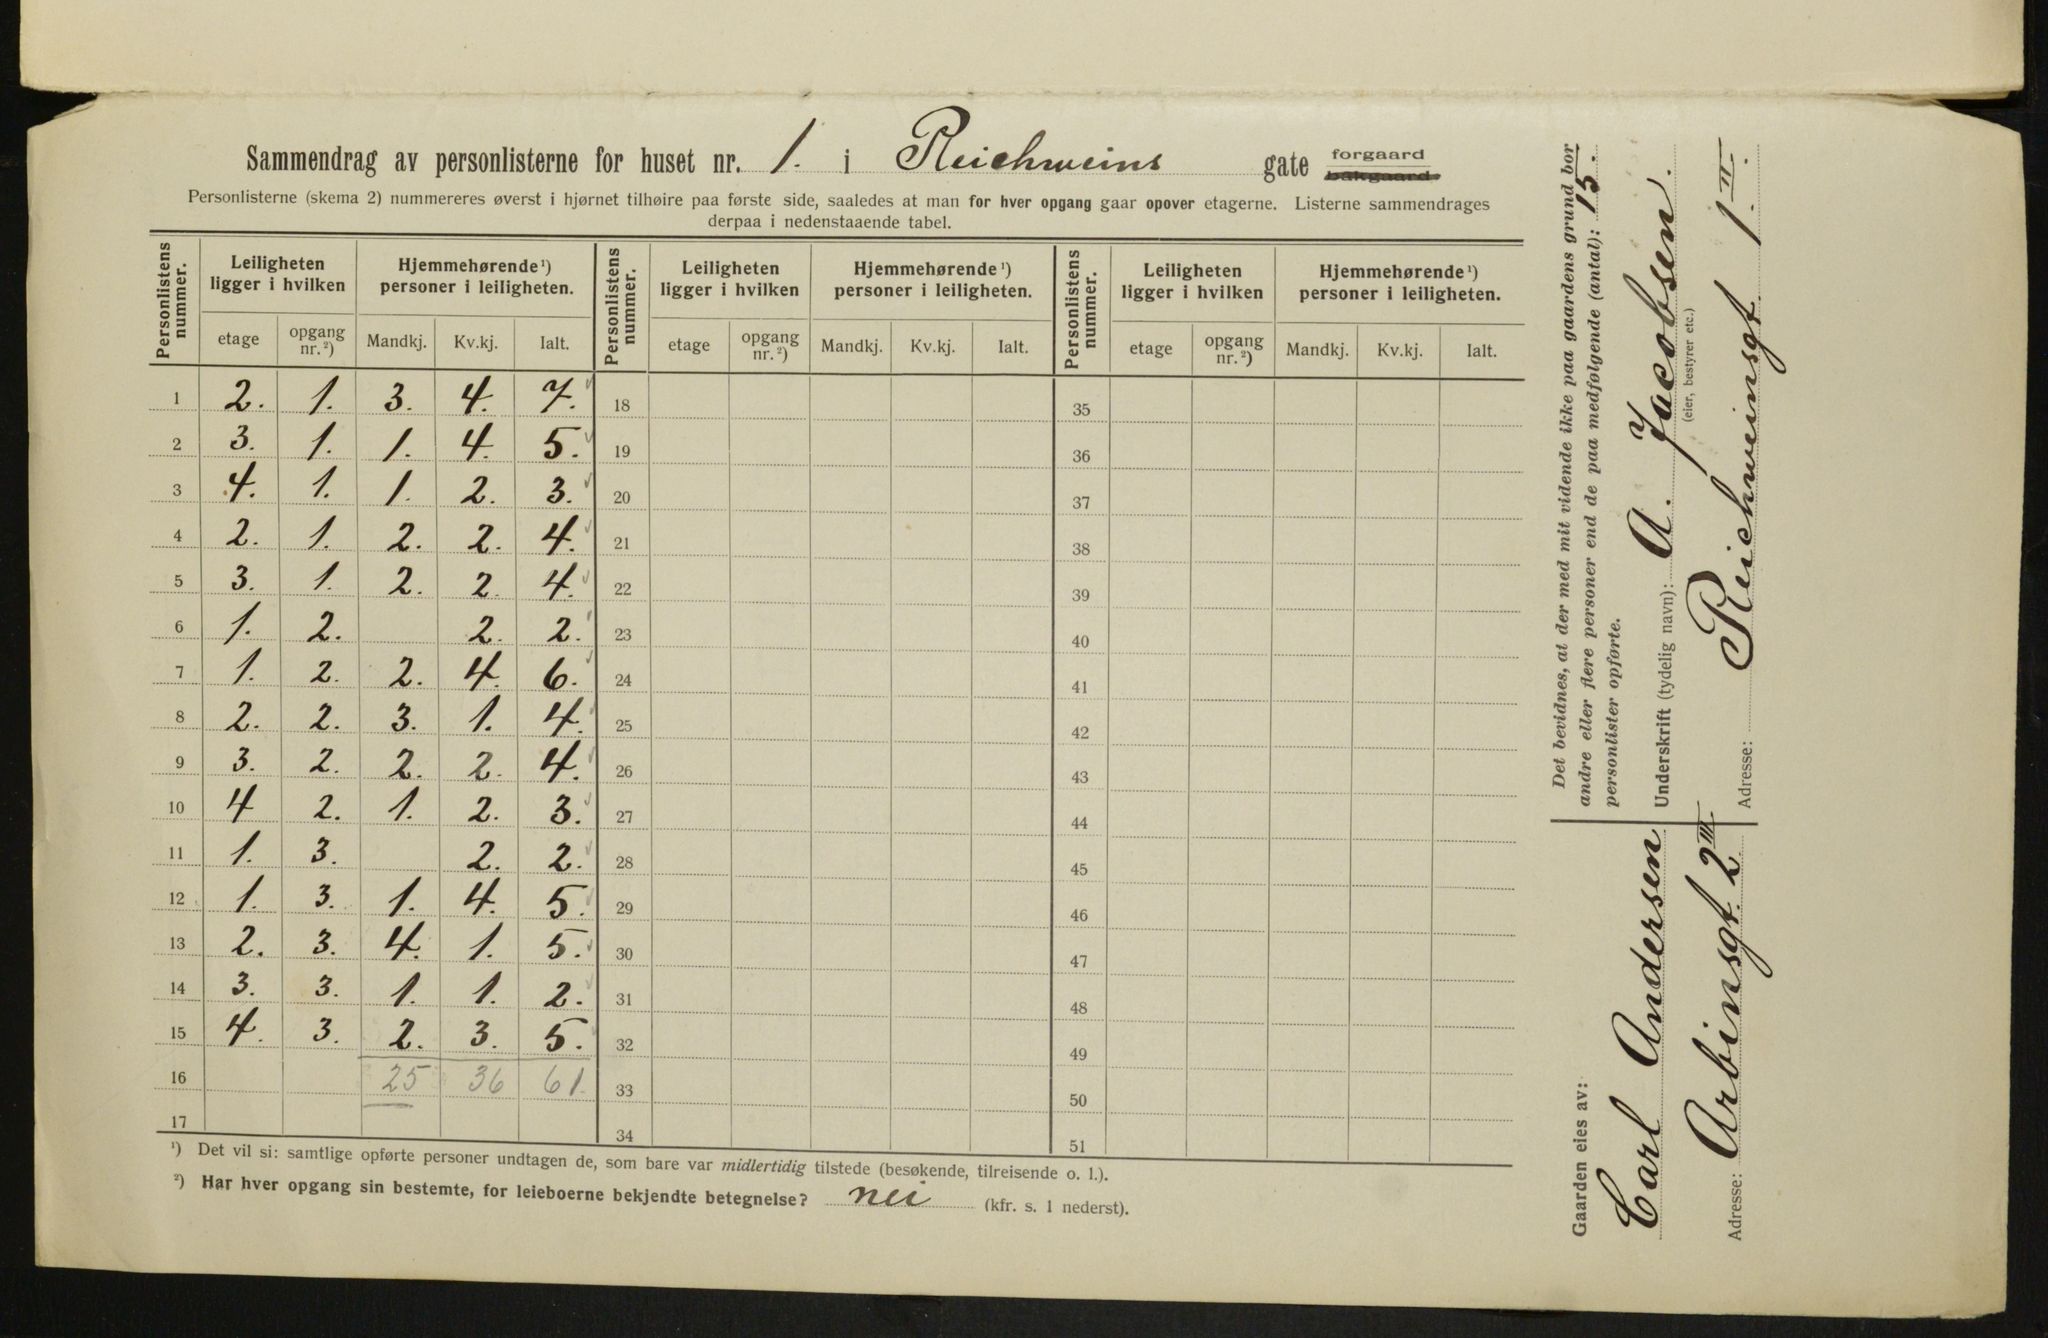 Sammendrag av personlisterne for huset nr. 1. i Reichweins gate forgaard bakgaard
Personlisterne (skema 2) nummereres øverst i hjørnet tilhøire paa første side, saaledes at man for hver opgang gaar opover etagerne. Listerne sammendrages
derpaa i nedenstaaende tabel.
Personlistens nummer. Leiligheten ligger i hvilken Hjemmehørende¹) personer i leiligheten. Personlistens nummer. Leiligheten ligger i hvilken Hjemmehørende¹) personer i leiligheten. Personlistens nummer. Leiligheten ligger i hvilken Hjemmehørende¹) personer i leiligheten.
etage opgang nr.²) Mandkj. Kv.kj. Ialt. etage opgang nr.²) Mandkj. Kv.kj. Ialt. etage opgang nr.²) Mandkj. Kv.kj. Ialt.
1 2. 1. 3. 4. 7. 18 35
2 3. 1. 1. 4. 5. 19 36
3 4. 1. 1. 2. 3. 20 37
4 2. 1. 2. 2. 4. 21 38
5 3. 1. 2. 2 4. 22 39
6 1. 2. 2. 2. 23 40
7 1. 2. 2. 4. 6. 24 41
8 2. 2. 3. 1. 4. 25 42
9 3. 2. 2. 2. 4. 26 43
10 4 2. 1. 2. 3. 27 44
11 1. 3. 2. 2. 28 45
12 1. 3. 1. 4. 5. 29 46
13 2. 3. 4. 1. 5. 30 47
14 3. 3. 1. 1. 2. 31 48
15 4. 3. 2. 3. 5. 32 49
16 25 36 61 33 50
17 34 51
¹) Det vil si: samtlige opførte personer undtagen de, som bare var midlertidig tilstede (besøkende, tilreisende o. l.).
²) Har hver opgang sin bestemte, for leieboerne bekjendte betegnelse? nei (kfr. s. 1 nederst).
Det bevidnes, at der med mit vidende ikke paa gaardens grund bor
andre eller flere personer end de paa medfølgende (antal): 15.
personlister opførte.
Underskrift (tydelig navn): A. Jacobsen.
(eier, bestyrer etc.)
Adresse: Reichweinsgt. 1. II.
Gaarden eies av:
Carl Andersen
Adresse: Arbinsgt. 2 III